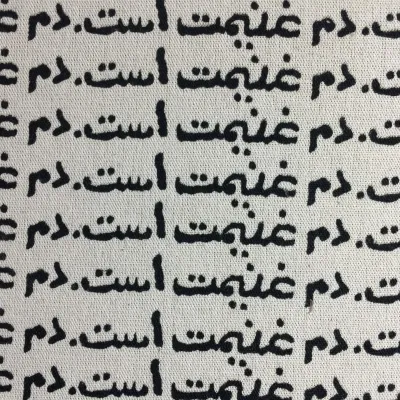 دم غنیمت است. دم
دم غنیمت است. دم
دم غنیمت است. دم
دم غنیمت است. دم
دم غنیمت است. دم
دم غنیمت است. دم
دم غنیمت است. دم
دم غنیمت است. دم